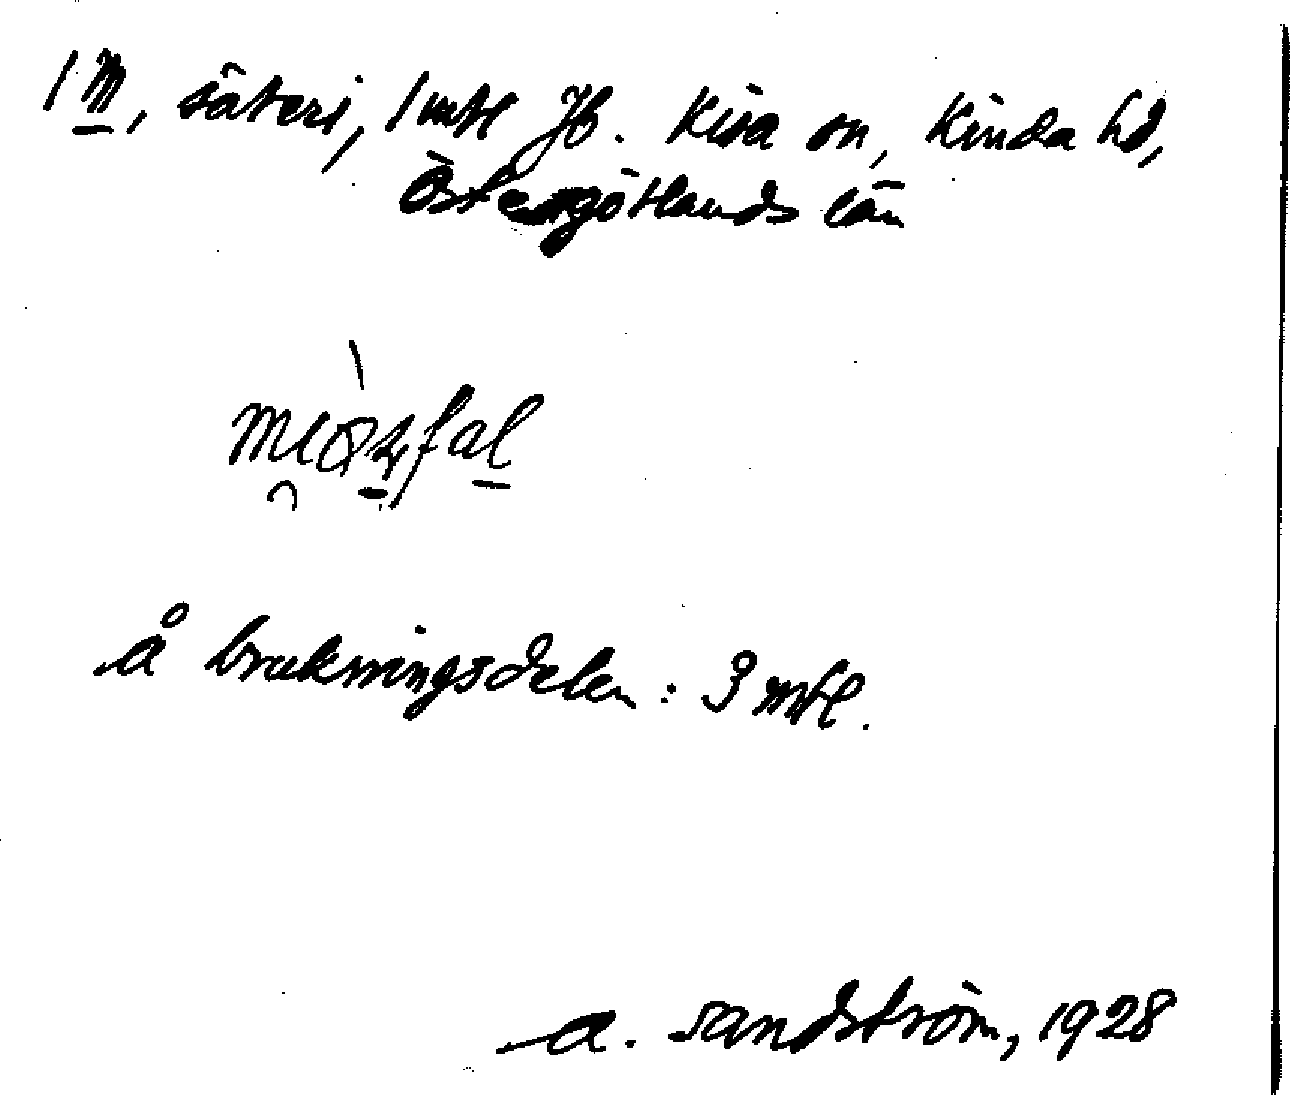 1 M, säteri, 1 mtl Jb. Kisa sn, Kinda hd,
Östergötlands län
å brukningsdelen: 3 mtl.
A. Sandström, 1928